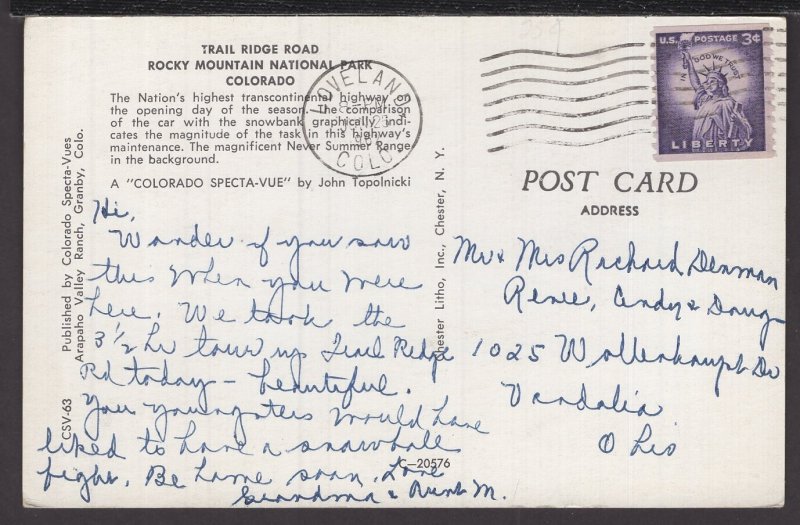 TRAIL RIDGE ROAD
ROCKY MOUNTAIN NATIONAL PARK
COLORADO
The Nation's highest transcontinental highway on
the opening day of the season. The comparison
of the car with the snowbank graphically indi-
cates the magnitude of the task in this highway's
maintenance. The magnificent Never Summer Range
in the background.
A "COLORADO SPECTA-VUE" by John Topolnicki
CSV-63
Published by Colorado Specta-Vues
Arapaho Valley Ranch, Granby, Colo.
Chester Litho, Inc., Chester, N. Y.
C-20576
LOVELAND
COLO.
U.S. POSTAGE 3¢
IN GOD WE TRUST
LIBERTY
POST CARD
ADDRESS
Hi,
Wonder if you saw
this when you were
here. We took the
3 1/2 hr tour up Trail Ridge
Rd today - beautiful.
Your youngsters would have
liked to have a snowball
fight. Be home soon, Love
Grandma & Aunt M.
Mr & Mrs Richard Denman
Renee, Cindy & Doug
1025 Wollenhaupt Dr
Vandalia
Ohio